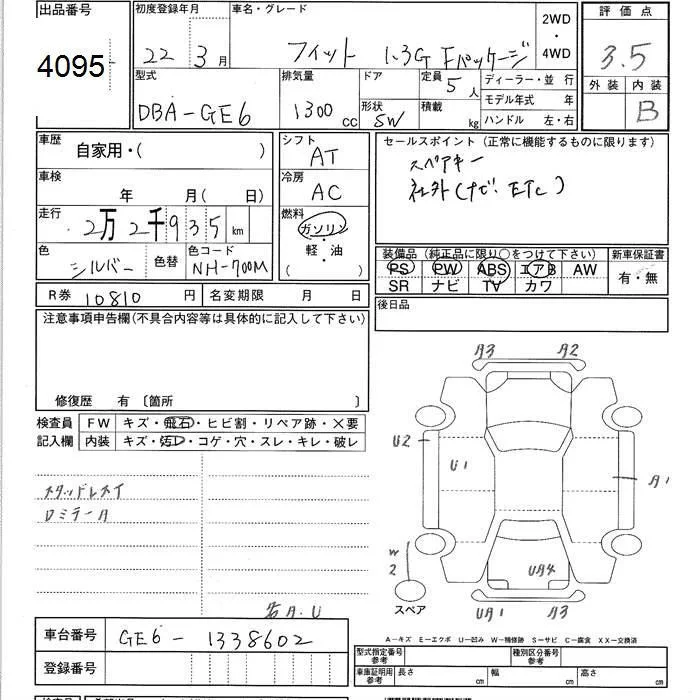 出品番号
4095
初度登録年月
22年 3月
車名・グレード
フィット 1.3G Fパッケージ
2WD
・
4WD
評価点
3.5
外装 内装
B
型式
DBA-GE6
排気量
1300cc
ドア
形状
SW
定員
5人
積載
kg
ディーラー・並 行
モデル年式 年
ハンドル 左・右
車歴
自家用・( )
車検
年 月( 日)
走行
2万2千935km
色
シルバー
色替
色コード
NH-700M
シフト
AT
冷房
AC
燃料
ガソリン
・
軽・油
( )
セールスポイント(正常に機能するものに限ります)
スペアキー
社外(ナビ、ETC)
装備品(純正品に限り○をつけて下さい)
PS PW ABS エアB AW
SR ナビ TV カワ
新車保証書
有・無
R券 10810円
名変期限 月 日
後日品
注意事項申告欄(不具合内容等は具体的に記入して下さい)
修復歴 有 〔箇所 〕
検査員
記入欄
FW キズ・飛石・ヒビ割・リペア跡・×要
内装 キズ・汚レ・コゲ・穴・スレ・キレ・破レ
A3 A2
U2
U1
A1
W2
スペア
UA4
UA1 A3
A-キズ E-エクボ U-凹み W-補修跡 S-サビ C-腐食 XX-交換済
車台番号
GE6-1338602
登録番号
型式指定番号
参考
種別区分番号
参考
車庫証明用
参考
長さ cm
幅 cm
高さ cm